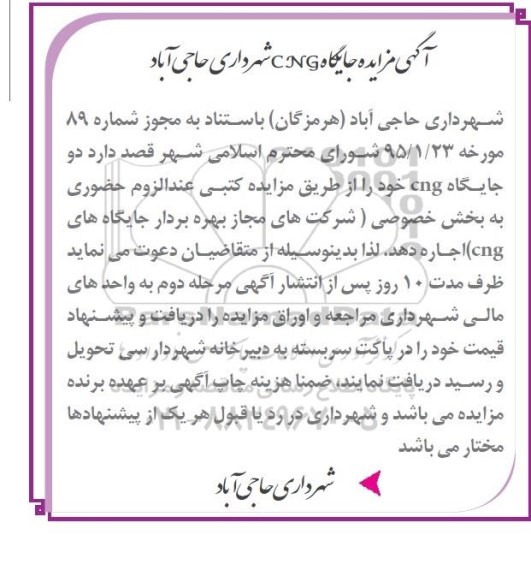 آگهی مزایده جایگاه CNG شهرداری حاجی آباد
شهرداری حاجی آباد (هرمزگان) باستناد به مجوز شماره ۸۹
مورخه ۹۵/۱/۲۳ شورای محترم اسلامی شهر قصد دارد دو
جایگاه cng خود را از طریق مزایده کتبی عندالزوم حضوری
به بخش خصوصی ( شرکت های مجاز بهره بردار جایگاه های
cng)اجاره دهد. لذا بدینوسیله از متقاضیان دعوت می نماید
ظرف مدت ۱۰ روز پس از انتشار آگهی مرحله دوم به واحد های
مالی شهرداری مراجعه و اوراق مزایده را دریافت و پیشنهاد
قیمت خود را در پاکت سربسته به دبیرخانه شهردار سی تحویل
و رسید دریافت نمایند، ضمنا هزینه چاپ آگهی بر عهده برنده
مزایده می باشد و شهرداری در رد یا قبول هر یک از پیشنهادها
مختار می باشد
شهرداری حاجی آباد